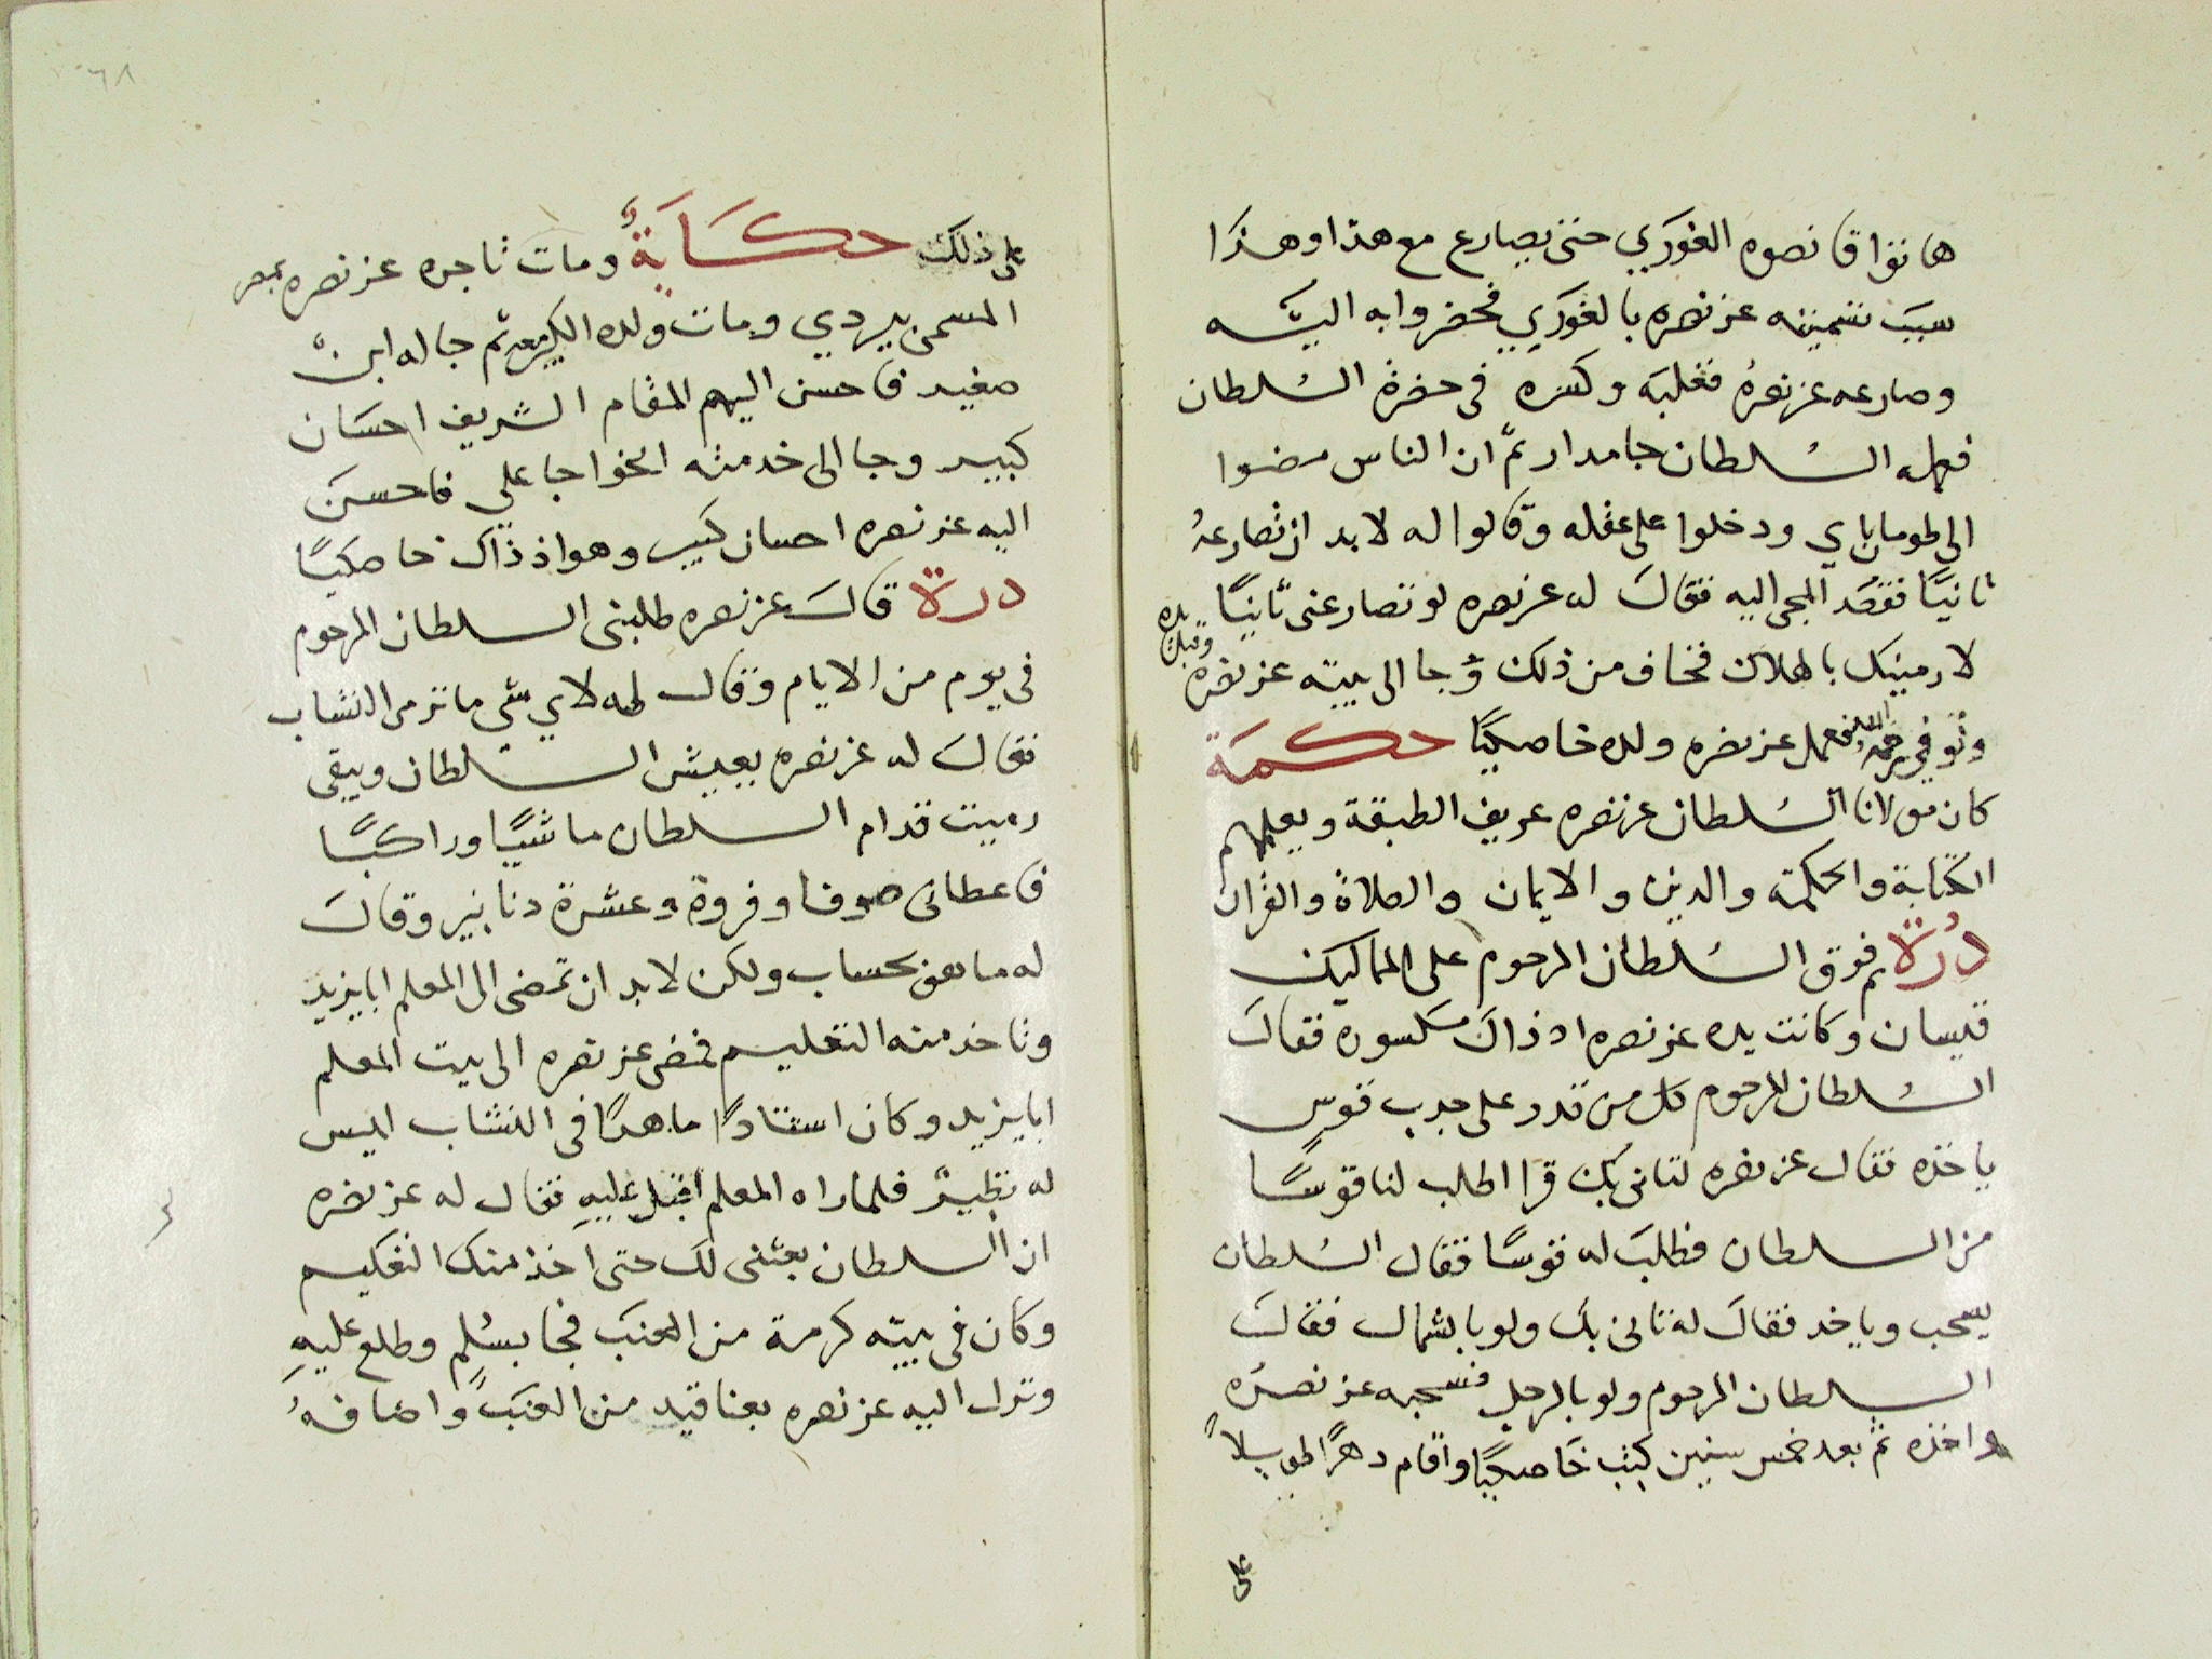 هاتوا قانصوه الغوري حتى يصارع مع هذا وهذا
سبب تسميته عز نصره بالغوري فحضروا به اليه
وصارعه عز نصرهُ فغلبه وكسره فى حضرة السُلطان
فعمله السُلطان جامدار ثمّ ان الناس مضوا
الى طومان باي ودخلوا على عقله وقالوا له لابد ان تصارعهُ
ثانيًا فقصَد المجى اليه فقالَ له عز نصره لو تصارعنى ثانيًا
لارمينك بالهلاك فخاف من ذلك وَجا الى بيته عز نصره وقبل يده
وتُوفي رحمه الله فعمل عز نصره ولده خاصكيًا حكمَة
كان مولانا السُلطان عز نصره عريف الطبقة ويعلمهم
الكتابة والحكمة والدين والايمان والصلاة والقران
دُرة ثم فرق السُلطان المرحوم على المماليك
قيسان وكانت يده عز نصره اذ ذاكَ مكسوره فقالَ
السُلطان المرحوم كل من قدر على جدب قوس
ياخذه فقال عز نصره لتانى بك قرا اطلب لنا قوسًا
من السلطان فطلبَ له قوسًا فقال السُلطان
يسحب وياخد فقالَ له تانى بك ولو بالشمال فقالَ
السلطان المرحوم ولو بالرجل فسحبه عز نصرُه
واخذه ثمّ بعد خمس سنين كتب خَاصكيًا واقام دهرًا طويلاً
على
٦٨
على ذلك حكَايَةٌ ومات تاجره عز نصره بمصر
المسمى بيردي ومات ولده الكبير معه ثم جا له ابن
صغير فاحسن اليهم المقام الشريف احسَان
كبير وجا الى خدمته الخواجا علي فاحسنَ
اليه عز نصره احسان كبير وهو اذ ذاك خاصكيًا
درة قالَ عز نصره طلبنى السلطان المرحوم
فى يوم من الايام وقال له لاي شي ما ترمى النشاب
فقالَ له عز نصره يعيش السلطان ويبقى
رميت قدام السلطان ماشيًا وراكبًا
فاعطانى صوفا وفروة وعشرة دنانير وقالَ
له ما هو بحساب ولكن لابد ان تمضى الى المعلم ابايزيد
وتاخذ منه التعليم فمضى عز نصره الى بيت المعلم
ابايزيد وكان استادًا ماهرًا فى النشاب ليس
له نظيرٌ فلما راه المعلم اقبل عليهِ فقال له عز نصره
ان السلطان بعتنى لك حتى اخذ منك التعليم
وكان فى بيته كرمة من العنَب فجا بسُلم وطلع عليهِ
ونزل اليه عز نصره بعناقيد من العنَب واضافهُ